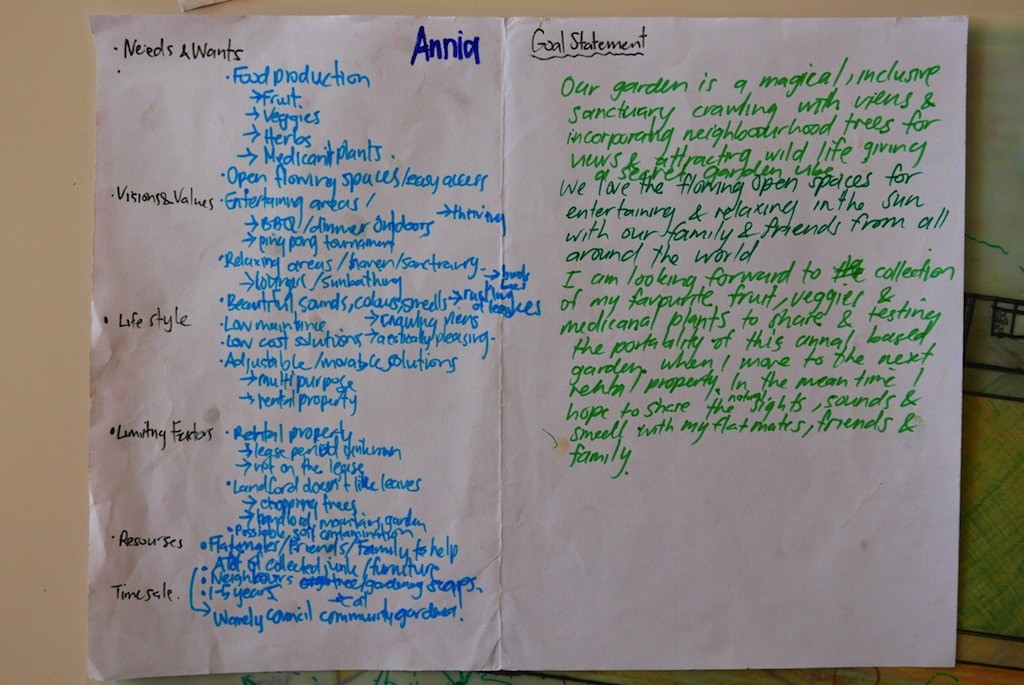 Annia
· Needs & Wants
·
· Food production
→ Fruit.
→ Veggies
→ Herbs
→ Medicanil plants.
· Open flowing spaces/easy access
· Visions & Values
· Entertaining areas /
→ thriving
→ BBQ / dinner outdoors
→ ping pong tournament
· Relaxing areas / haven / sanctraury
→ birds
→ lounges / sunbathing
· Beautiful sounds, colours, smells → rustling
of leaves
· Life style
· Low maintince
→ Crawling viens
· Low cost solutions → aestically pleasing
· Adjustable / movable solutions
→ multi purpose
→ rental property
· Limiting Factors
· Rental property
→ lease period unknown
→ not on the lease
· Landlord doesn't like leaves
→ chopping trees
→ landlord mountains garden
· Possiable soil contamination
· Resourses
· Flatmates / Friends / Family to help
· A lot of collected junk / furniture
· Neighbours tree / gardening scraps.
→ cat
Time sale.
· 1-5 years
→ Warely council community gardens.
Goal Statement
Our garden is a magical, inclusive
sanctuary crawling with viens &
incorporating neighbourhood trees for
views & attracting wild life giving
a secret garden vibe
We love the flowing open spaces for
entertaining & relaxing in the sun
with our family & friends from all
around the world
I am looking forward to collection
of my favourite fruit, veggies &
medicanal plants to share & testing
the portability of this annal based
garden when I move to the next
rental property. In the mean time I
hope to share the natural sights, sounds &
smell with my flatmates, friends &
family.